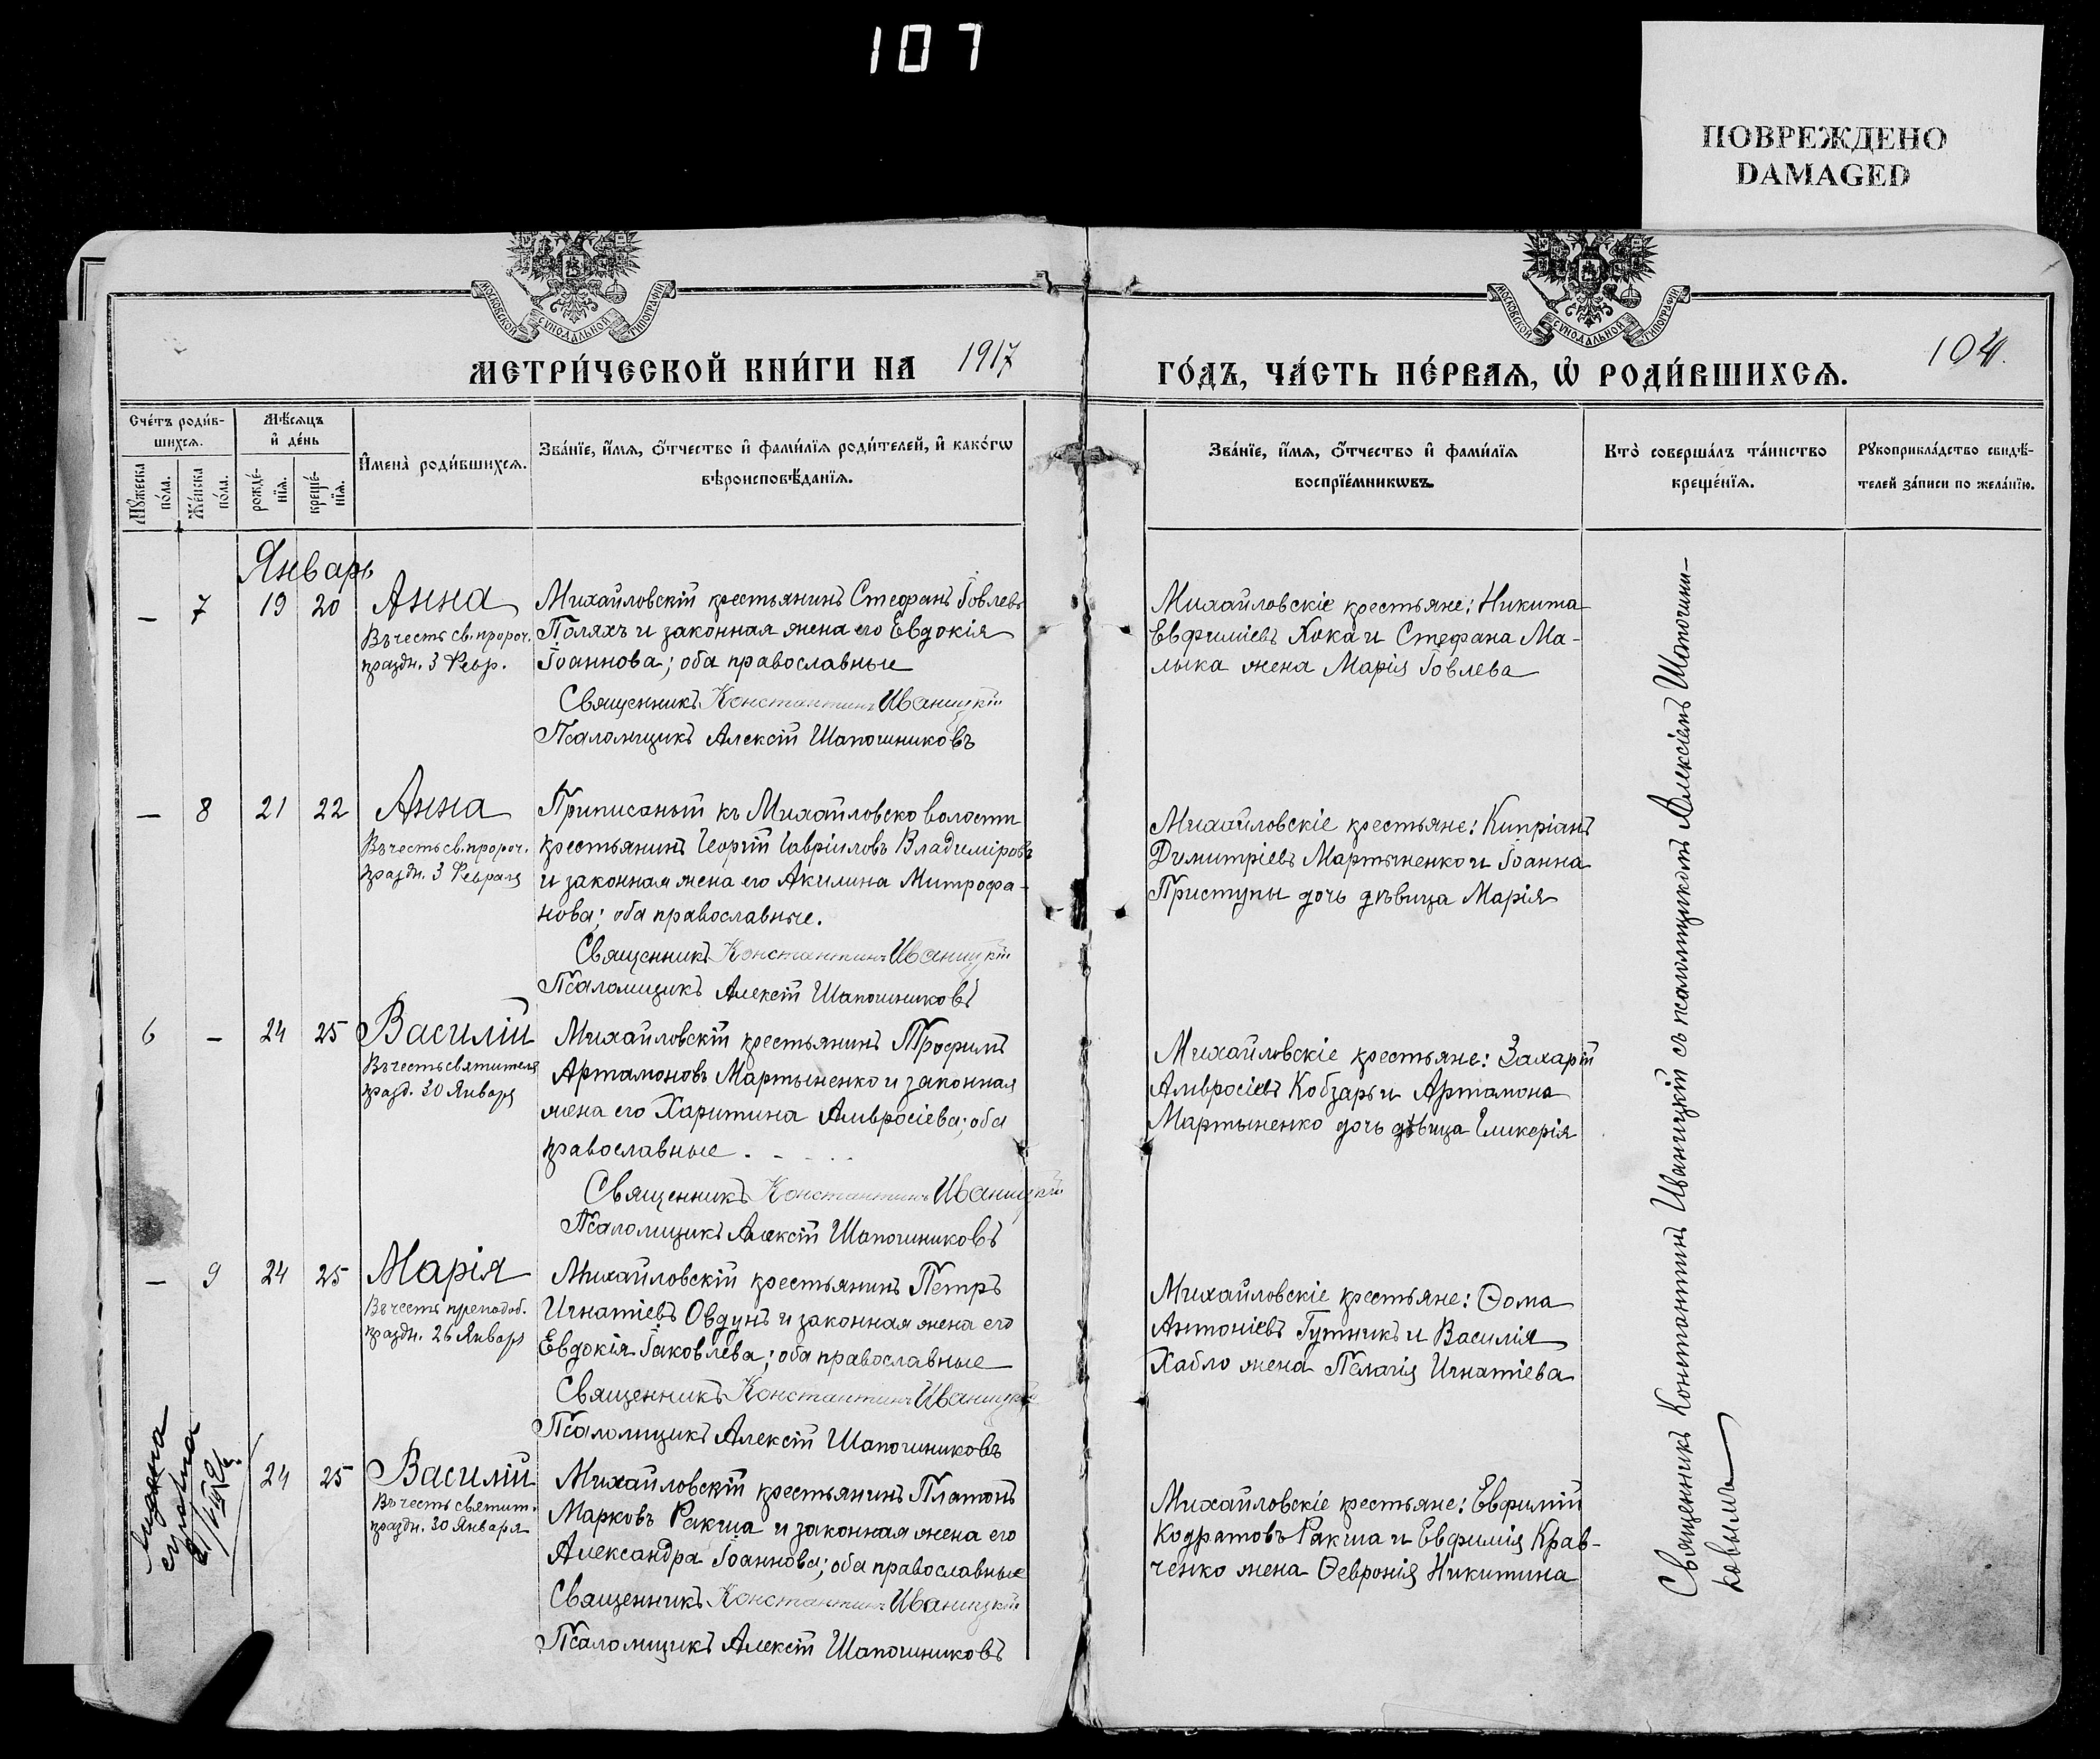 107
ПОВРЕЖДЕНО
DAMAGED
МОСКОВСКОЙ СѴНОДАЛЬНОЙ ТИПОГРАФІИ
МОСКОВСКОЙ СѴНОДАЛЬНОЙ ТИПОГРАФІИ
МЕТРИ́ЧЕСКОЙ КНИ́ГИ НА 1917 ГО́ДЪ, ЧА́СТЬ ПЕ́РВАѦ, Ѡ҆ РОДИ́ВШИХСѦ.
104.
Сче́тъ роди́в-
шихсѧ.
Мѣ́сѧцъ
и҆ де́нь
Мꙋ́жеска
по́ла.
Же́нска
по́ла.
рожде́-
нїѧ.
креще́-
нїѧ.
И҆мена̀ роди́вшихсѧ.
Зва́нїе, и҆́мѧ, ѻ҆́тчество и҆ фами́лїѧ роди́телей, и҆ како́гѡ
вѣроисповѣ́данїѧ.
Зва́нїе, и҆́мѧ, ѻ҆́тчество и҆ фами́лїѧ
воспрїе́мникѡвъ.
Кто̀ соверша́лъ та́инство
креще́нїѧ.
Рꙋкоприкла́дство свидѣ́-
телей за́писи по жела́нїю.
Январь
— 7 19 20 Анна
Въ честь св. пророч.
праздн. 3 Февр.
Михайловскій крестьянинъ Стефанъ Іовлевъ
Поляхъ и законная жена его Евдокія
Іоаннова; оба православные
Священникъ Константинъ Иваницкій
Псаломщикъ Алексій Шапошниковъ
Михайловскіе крестьяне: Никита
Евфиміевъ Кока и Стефана Ма-
лыка жена Марія Іовлева
— 8 21 22 Анна
Въ честь св. пророч.
праздн. 3 Февраля
Приписаный къ Михайловско волости
крестьянинъ Георгій Гавріиловъ Владиміровъ
и законная жена его Акилина Митрофа-
нова; оба православные.
Священникъ Константинъ Иваницкій
Псаломщикъ Алексій Шапошниковъ
Михайловскіе крестьяне: Кипріанъ
Димитріевъ Мартыненко и Іоанна
Приступы дочь дѣвица Марія
6 — 24 25 Василій
Въ честь святителя
празд. 30 Января
Михайловскій крестьянинъ Трофимъ
Артамоновъ Мартыненко и законная
жена его Харитина Амвросіева; оба
православные.
Священникъ Константинъ Иваницкій
Псаломщикъ Алексій Шапошниковъ
Михайловскіе крестьяне: Захарій
Амвросіевъ Кобзарь и Артамона
Мартыненко дочь дѣвица Гликерія
— 9 24 25 Марія
Въ честь преподоб.
праздн. 26 Января
Михайловскій крестьянинъ Петръ
Игнатіевъ Овдунъ и законная жена его
Евдокія Іаковлева; оба православные
Священникъ Константинъ Иваницкій
Псаломщикъ Алексій Шапошниковъ
Михайловскіе крестьяне: Ѳома
Антоніевъ Гутникъ и Василія
Хабло жена Пелагія Игнатіева
24 25 Василій
Въ честь святит.
праздн. 30 Января
Михайловскій крестьянинъ Платонъ
Марковъ Ракша и законная жена его
Александра Іоаннова; оба православные
Священникъ Константинъ Иваницкій
Псаломщикъ Алексій Шапошниковъ
Михайловскіе крестьяне: Евфимій
Кодратовъ Ракша и Евфимія Крав-
ченко жена Ѳевронія Никитина
Священникъ Константинъ Иваницкій съ псаломщикомъ Алексіемъ Шапошни-
ковымъ